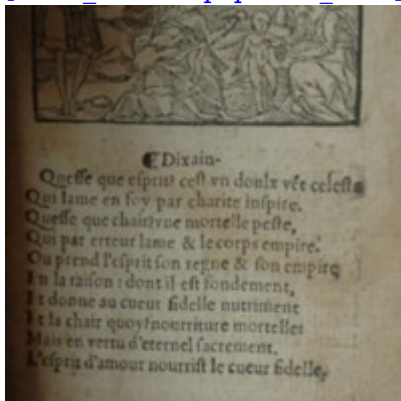 ❡ Dixain.
Quesse que esprit? cest vn doulx vẽt celeste
Qui lame en foy par charite inspire.
Quesse que chair? vne mortelle peste,
Qui par erreur lame & le corps empire.
Ou prend l'esprit son regne & son empire?
En la raison: dont il est fondement,
Et donne au cueur fidelle nutriment
Et la chair quoy? nourriture mortelle:
Mais en vertu d'eternel sacrement,
L'esprit d'amour nourrist le cueur fidelle.